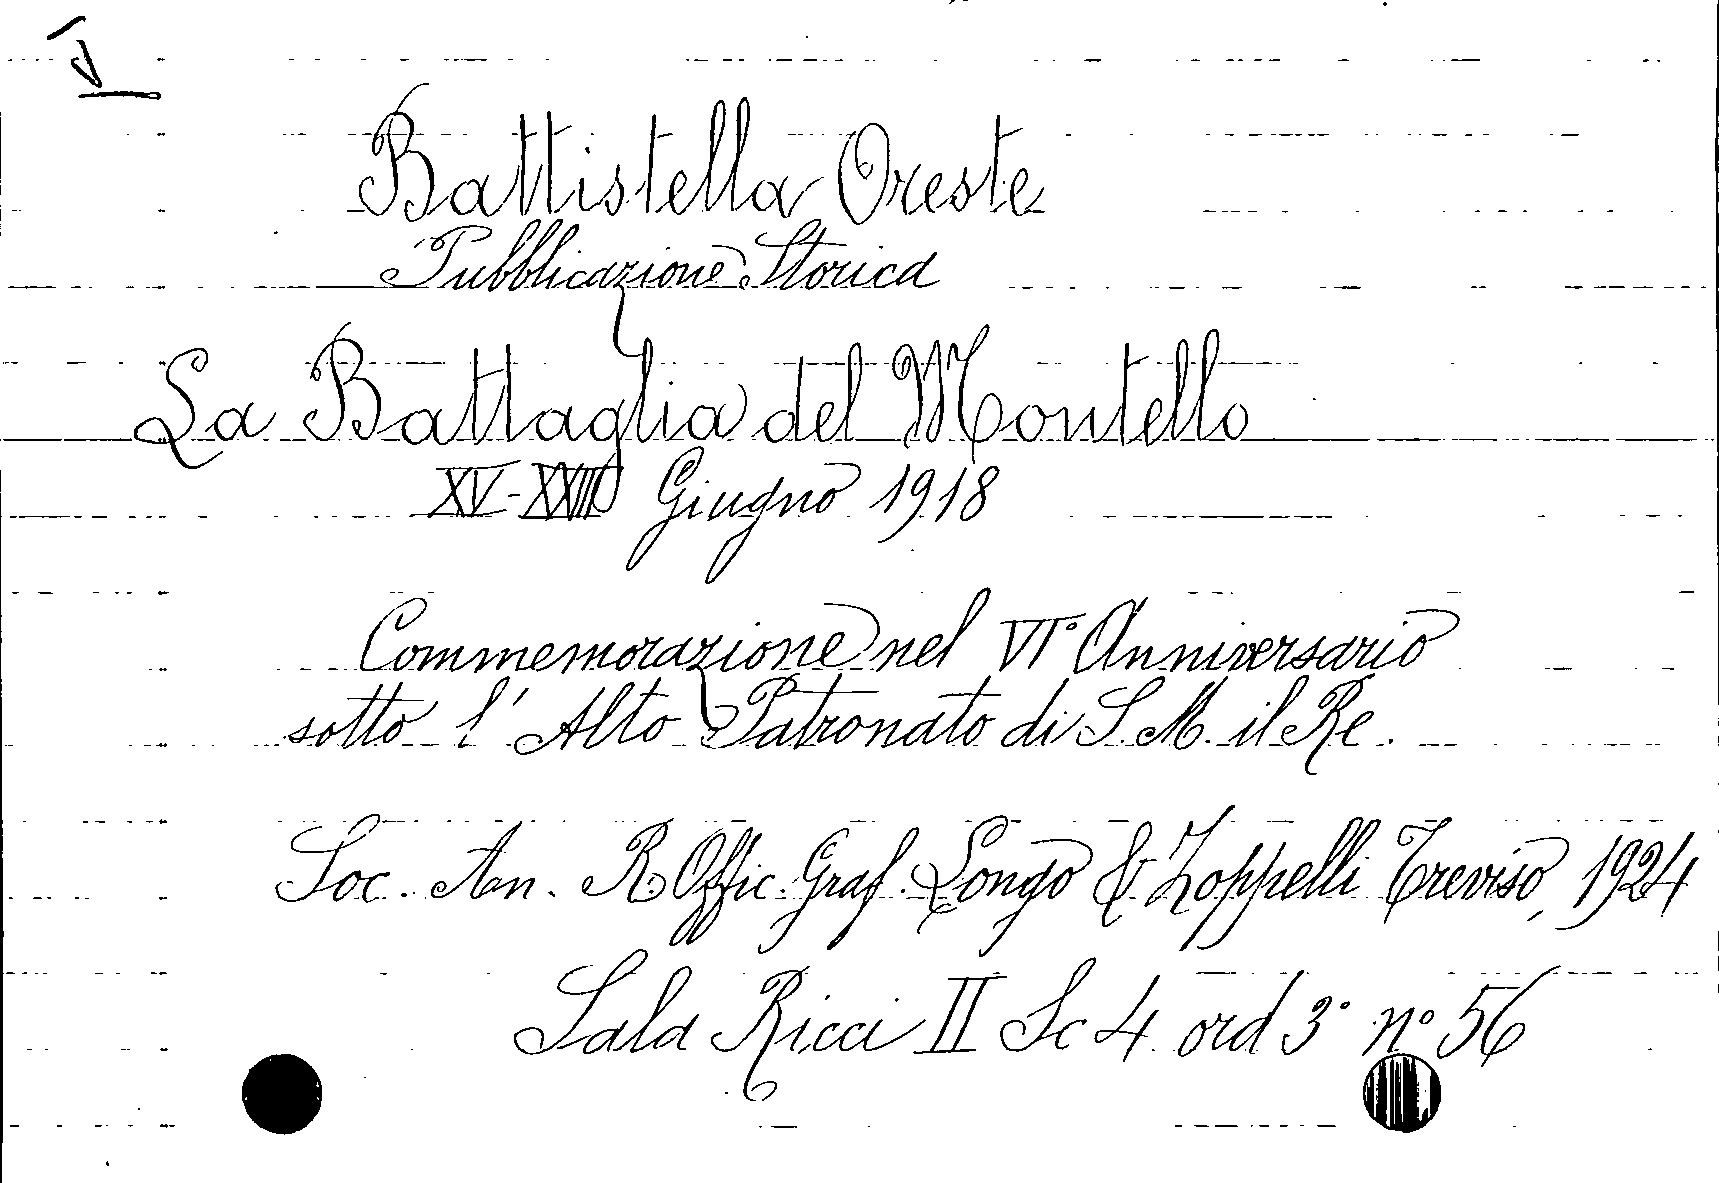 V
Battistella Oreste
Pubblicazione Storica
La Battaglia del Montello
XV-XXIII Giugno 1918
Commemorazione nel VI° Anniversario
sotto l'Alto Patronato di S. M. il Re.
Soc. An. R. Offic. Graf. Longo & Zoppelli Treviso, 1924
Sala Ricci II Sc 4 ord 3° n° 56